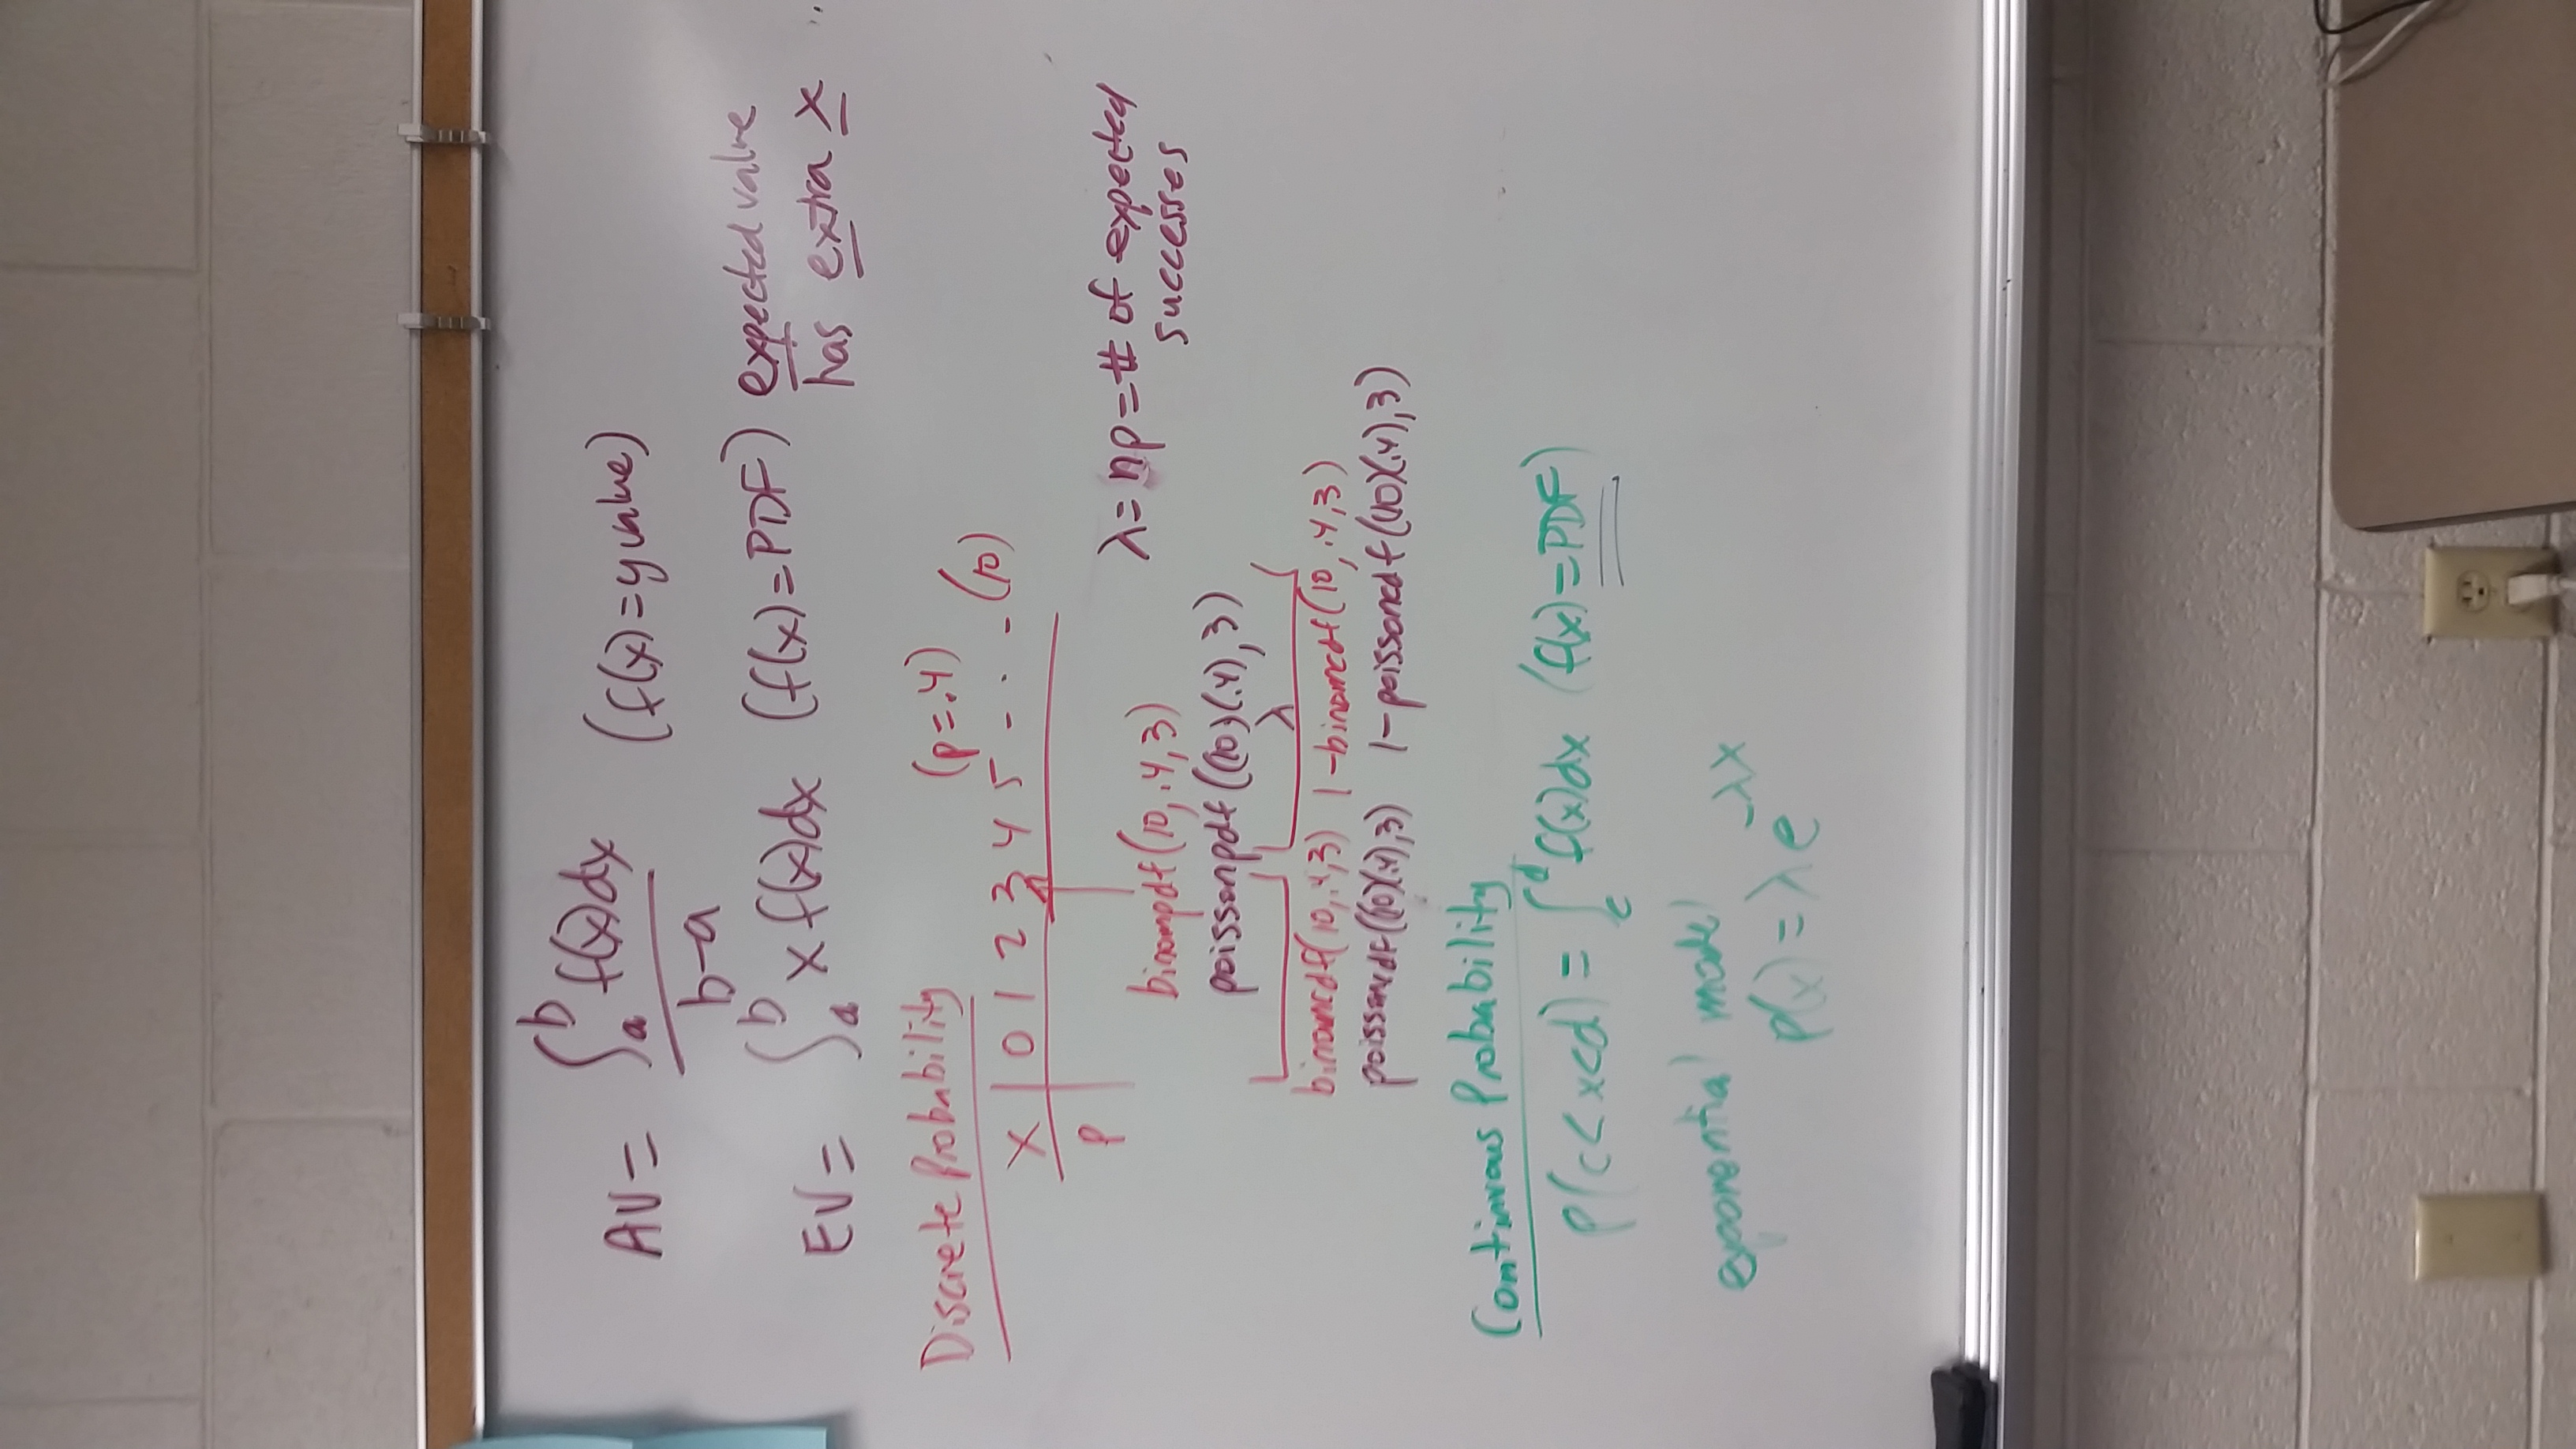 AV = ∫ₐᵇ f(x)dx / b-a (f(x)=y value)
EV = ∫ₐᵇ x f(x)dx (f(x)=PDF) expected value
has extra x
Discrete Probability (p=.4)
X | 0 1 2 3 4 5 - - - (10)
P
λ = np = # of expected
successes
binompdf(10,.4,3)
poissonpdf((10)(.4),3)
λ
binomcdf(10,.4,3) 1-binomcdf(10,.4,3)
poissoncdf((10)(.4),3) 1-poissoncdf((10)(.4),3)
Continuous Probability
P(c<x<d) = ∫_c^d f(x)dx (f(x)=PDF)
exponential model
P(x) = λe^-λx